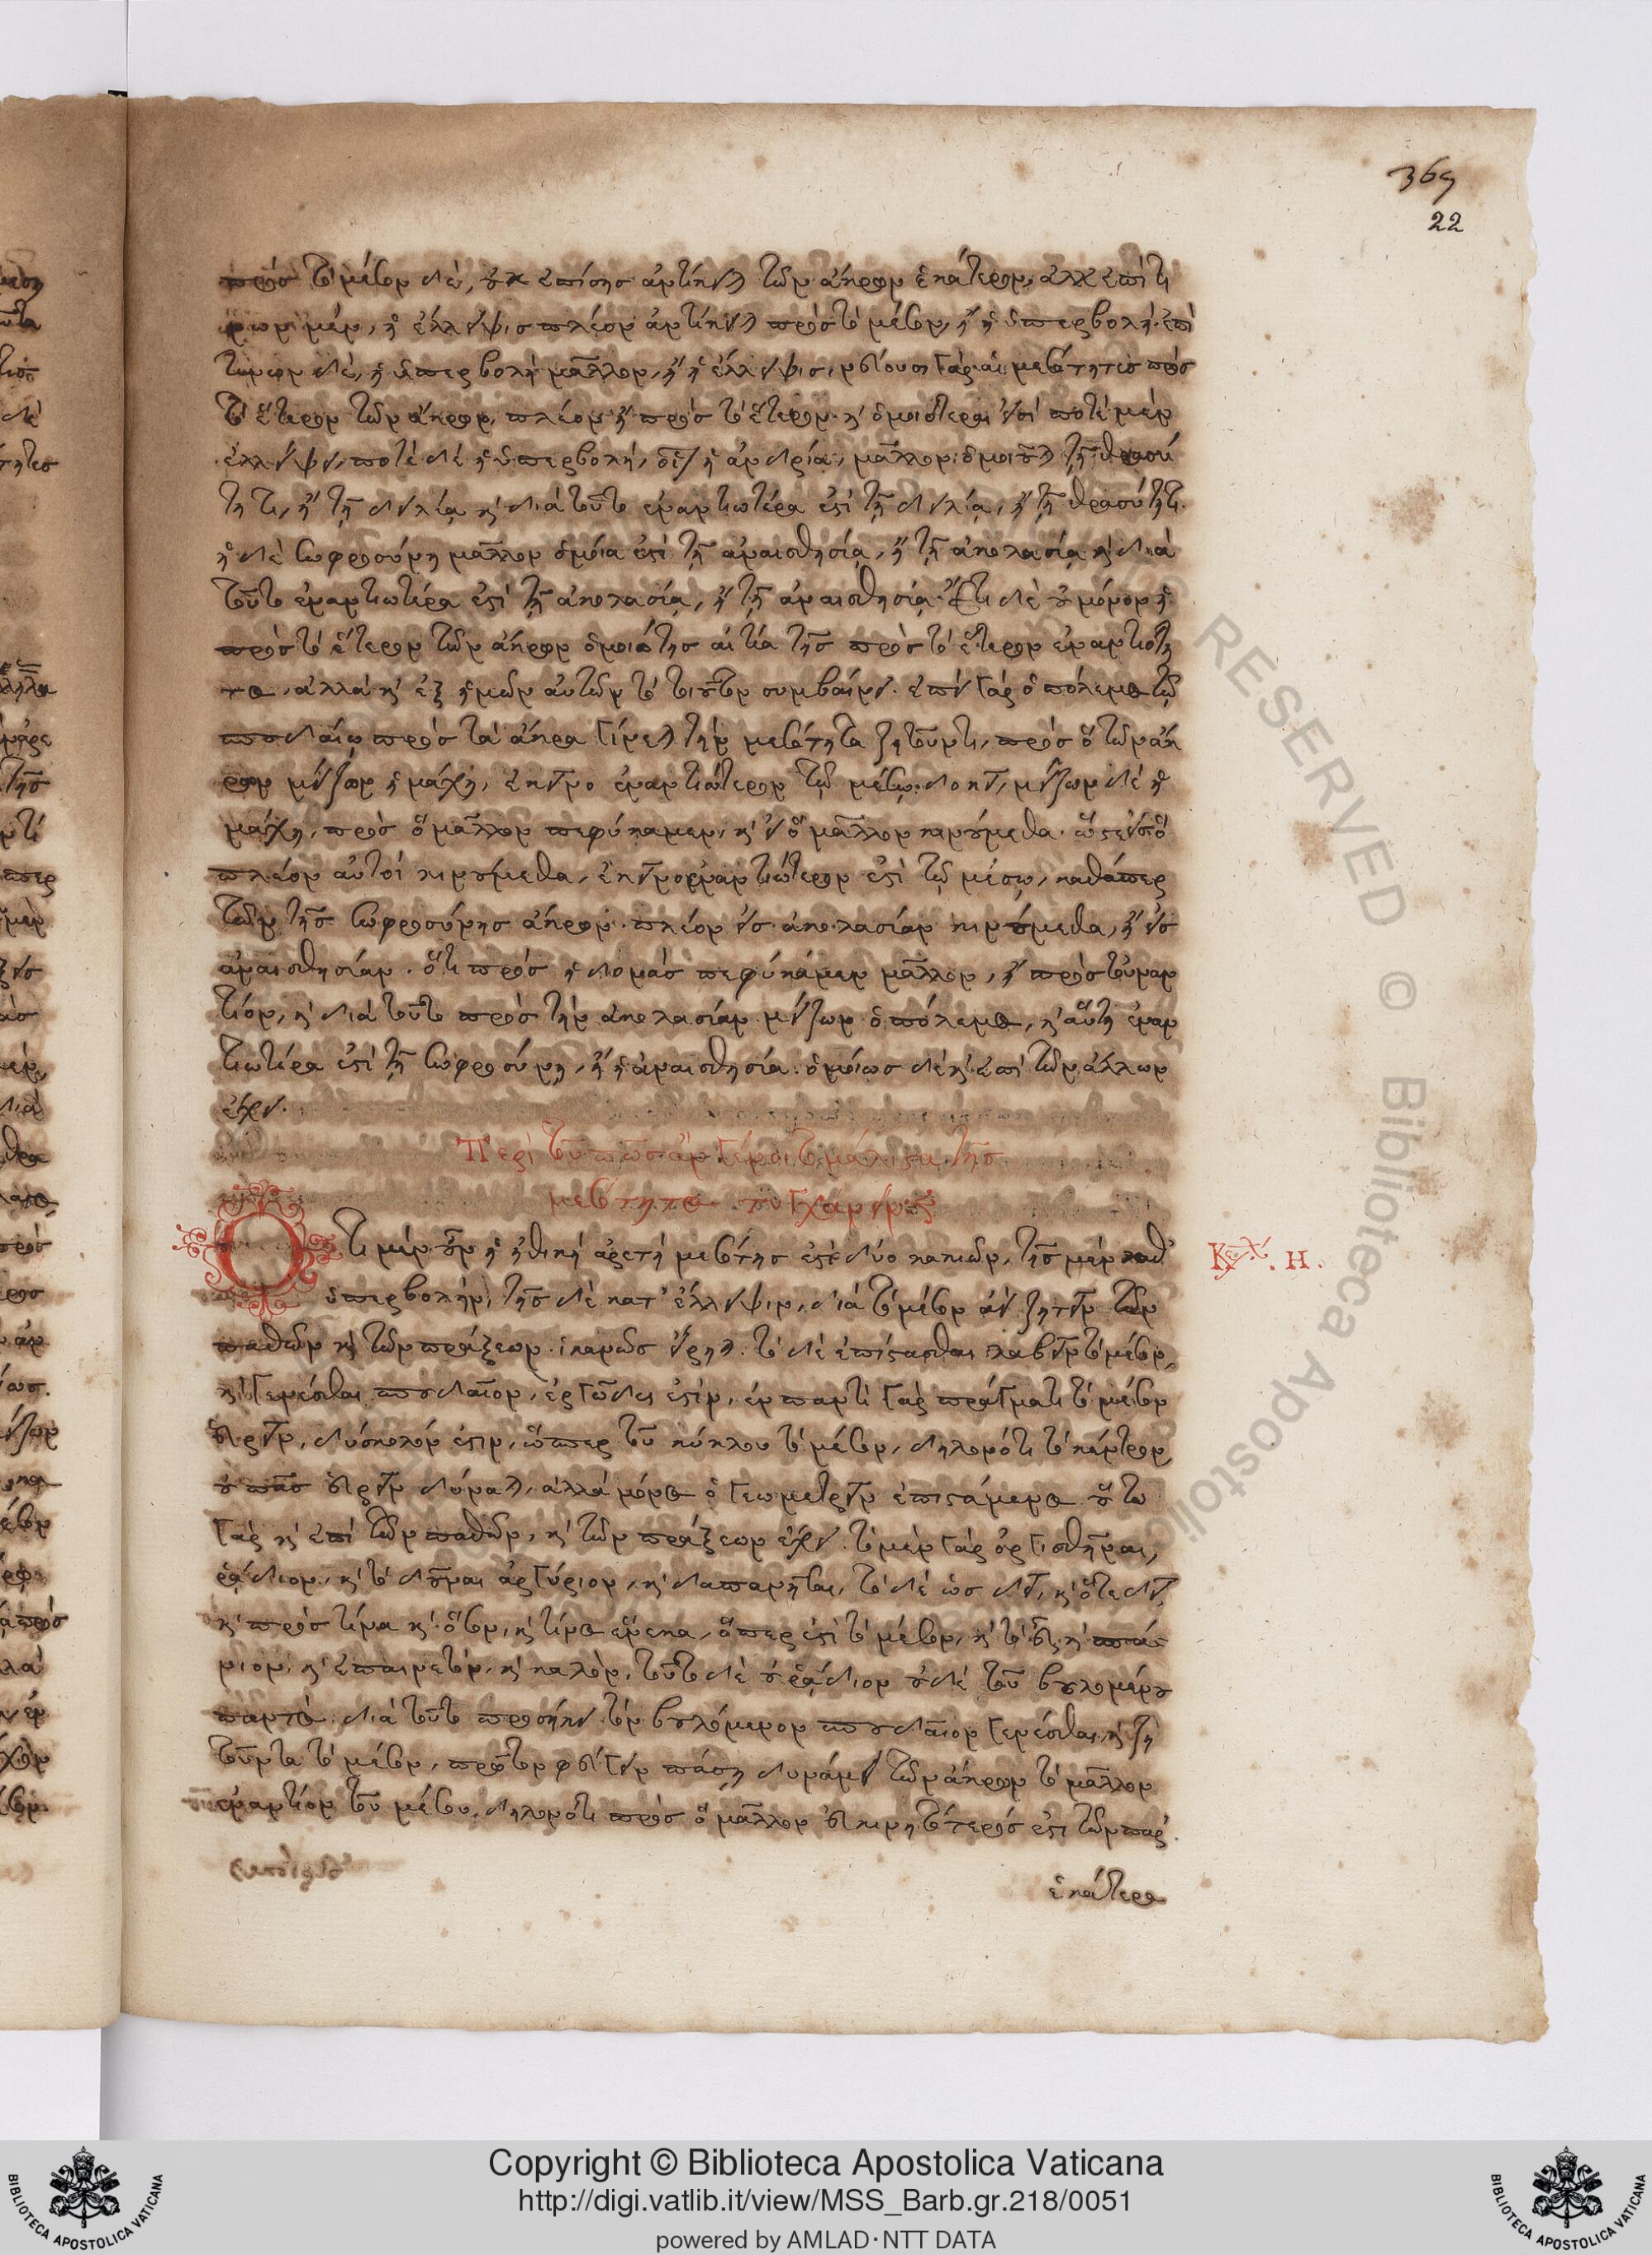 369
22
πρὸς τὸ μέσον δὲ, οὐκ ἐπίσης ἀντίκειται τῶν ἄκρων ἑκάτερον, ἀλλ' ἐπὶ τι
νων μὲν, ἡ ἔλλειψις πλέον ἀντίκειται πρὸς τὸ μέσον, ἢ ἡ ὑπερβολή· ἐπὶ
τινῶν δὲ, ἡ ὑπερβολὴ μᾶλλον, ἢ ἡ ἔλλειψις, γὰρ αἱ μεσότητες πρὸς
τὸ ἕτερον τῶν ἄκρων, πλέον ἢ πρὸς τὸ ἕτερον· καὶ ὁμοιότεραι εἰσὶ ποτὲ μὲν
ἐλλείψει, ποτὲ δὲ ἡ ὑπερβολή, ἡ ἀνδρία, μᾶλλον ὁμοιοῦται τῇ θρασύ
τητι, ἢ τῇ δειλίᾳ καὶ διὰ τοῦτο ἐναντιωτέρα ἐστὶ τῇ δειλίᾳ, ἢ τῇ θρασύτητι.
ἡ δὲ σωφροσύνη μᾶλλον ὁμοία ἐστὶ τῇ ἀναισθησίᾳ, ἢ τῇ ἀκολασίᾳ καὶ διὰ
τοῦτο ἐναντιωτέρα ἐστὶ τῇ ἀκολασίᾳ, ἢ τῇ ἀναισθησίᾳ. Ἔτι δὲ οὐ μόνον ἡ
πρὸς τὸ ἕτερον τῶν ἄκρων ὁμοιότης αἰτία τῆς πρὸς τὸ ἕτερον ἐναντιότη
τος, ἀλλὰ καὶ ἐξ ἡμῶν αὐτῶν τὸ τοιοῦτον συμβαίνει. ἐπεὶ γὰρ ὁ πόλεμος τῷ
σπουδαίῳ πρὸς τὰ ἄκρα γίνεται τὴν μεσότητα ζητοῦντι, πρὸς ὃ τῶν ἄκ
ρων μείζων ἡ μάχη, ἐκεῖνο ἐναντιώτερον τῷ μέσῳ δοκεῖ, μείζων δὲ ἡ
μάχη, πρὸς ὃ μᾶλλον πεφύκαμεν, καὶ εἰς ὃ μᾶλλον κινούμεθα. ὥστε εἰς ὃ
πλέον αὐτοὶ κινούμεθα, ἐκεῖνο ἐναντιώτερον ἐστὶ τῷ μέσῳ, καθάπερ
τῶν τῆς σωφροσύνης ἄκρων. πλέον εἰς ἀκολασίαν κινούμεθα, ἢ εἰς
ἀναισθησίαν. ὅτι πρὸς ἡδονὰς πεφύκαμεν μᾶλλον, ἢ πρὸς τοὐναν
τίον, καὶ διὰ τοῦτο πρὸς τὴν ἀκολασίαν μείζων ὁ πόλεμος, καὶ αὕτη ἐναν
τιωτέρα ἐστὶ τῇ σωφροσύνῃ, ἢ ἡ ἀναισθησία. ὁμοίως δὲ καὶ ἐπὶ τῶν ἄλλων
ἔχει.
Περὶ τοῦ πῶς ἂν γένοιτο μάλιστα τῆς
μεσότητος τυγχάνειν
Ὅτι μὲν οὖν ἡ ἠθικὴ ἀρετὴ μεσότης ἐστὶ δύο κακιῶν, τῆς μὲν καθ'
Κεφ. Η.
ὑπερβολήν, τῆς δὲ κατ' ἔλλειψιν, διὰ τὸ μέσον ἀεὶ ζητεῖν τῶν
παθῶν καὶ τῶν πράξεων ἱκανῶς εἴρηται. τὸ δὲ ἐπίστασθαι λαβεῖν τὸ μέσον,
καὶ γενέσθαι σπουδαῖον, ἐργῶδες ἐστίν, ἐν παντὶ γὰρ πράγματι τὸ μέσον
εὑρεῖν, δύσκολόν ἐστιν, ὥσπερ τοῦ κύκλου τὸ μέσον, δηλονότι τὸ κέντρον,
οὐ πᾶς εὑρεῖν δύναται, ἀλλὰ μόνος ὁ γεωμετρεῖν ἐπιστάμενος. οὕτω
γὰρ καὶ ἐπὶ τῶν παθῶν, καὶ τῶν πράξεων ἔχει. τὸ μὲν γὰρ ὀργισθῆναι,
ῥᾴδιον, καὶ τὸ δοῦναι ἀργύριον, καὶ δαπανῆσαι, τὸ δὲ ὡς δεῖ, καὶ ὅτε δεῖ,
καὶ πρὸς τίνα καὶ ὅσον, καὶ τίνος ἕνεκα, ὅπερ ἐστὶ τὸ μέσον, καὶ τὸ εὖ, καὶ σπά
νιον, καὶ ἐπαινετὸν, καὶ καλὸν, τοῦτο δὲ οὐ ῥᾴδιον οὐδὲ τοῦ βουλομένου
παντός. διὰ τοῦτο προσήκει τὸν βουλόμενον σπουδαῖον γενέσθαι, καὶ ζη
τοῦντα τὸ μέσον, πρῶτον φεύγειν πάσῃ δυνάμει τῶν ἄκρων τὸ μᾶλλον
ἐναντίον τοῦ μέσου, δηλονότι πρὸς ὃ μᾶλλον εὐκινητότερός ἐστι τῶν παρ'
ἑκάτερα